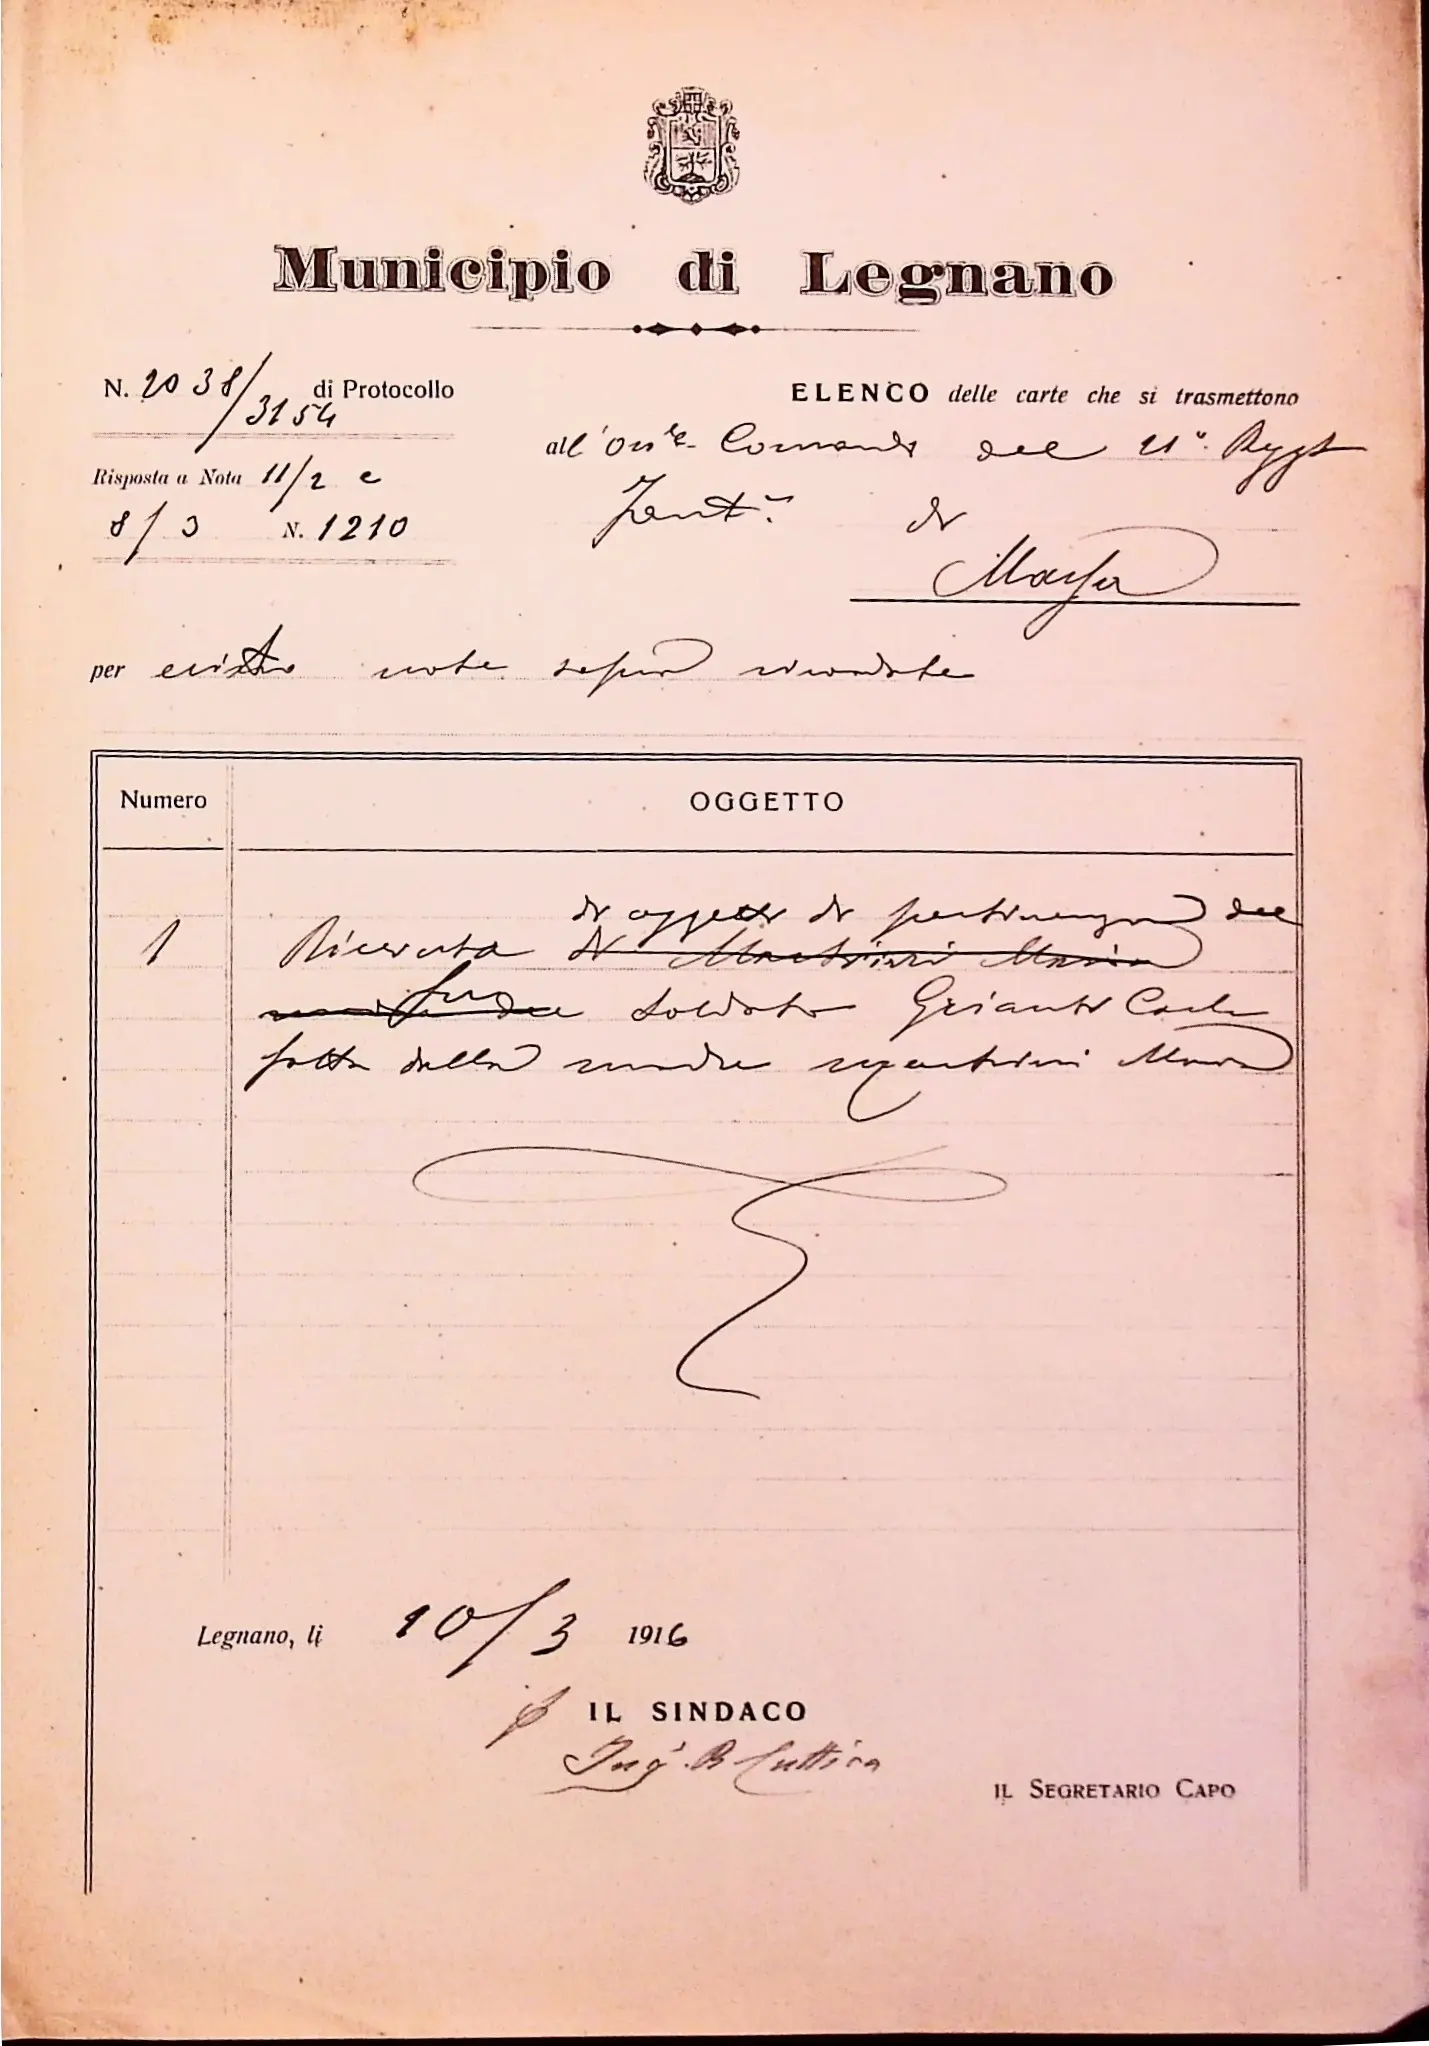 Municipio di Legnano
N. 2038/3154 di Protocollo
ELENCO delle carte che si trasmettono
all'On.le Comando del 21° Regg.t
Risposta a Nota 11/2 e
Fant.a di
8/3 N. 1210
Massa
per note sopra ricordate
Numero OGGETTO
di oggetti di pertinenza del
1 Ricevuta di Martinini Maria
fu del soldato Grianti Carlo
fatta dalla madre Martinini Maria
Legnano, li 10/3 1916
IL SINDACO
Ing. R Cuttica
IL SEGRETARIO CAPO